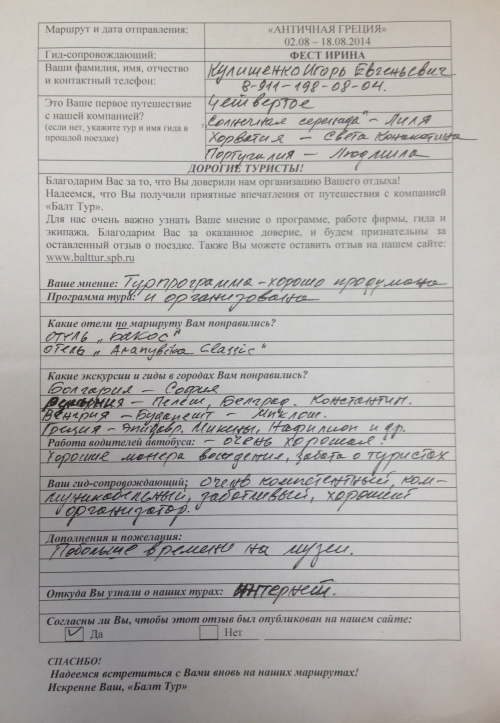 Маршрут и дата отправления: «АНТИЧНАЯ ГРЕЦИЯ»
02.08 – 18.08.2014
Гид-сопровождающий: ФЕСТ ИРИНА
Ваши фамилия, имя, отчество Кулишенко Игорь Евгеньевич
и контактный телефон: 8-911-198-08-04.
Это Ваше первое путешествие Четвертое
с нашей компанией? „Солнечная серенада" – Лиля
(если нет, укажите тур и имя гида в Хорватия – Света
прошлой поездке) Португалия – Людмила
ДОРОГИЕ ТУРИСТЫ!
Благодарим Вас за то, что Вы доверили нам организацию Вашего отдыха!
Надеемся, что Вы получили приятные впечатления от путешествия с компанией
«Балт Тур».
Для нас очень важно узнать Ваше мнение о программе, работе фирмы, гида и
экипажа. Благодарим Вас за оказанное доверие, и будем признательны за
оставленный отзыв о поездке. Также Вы можете оставить отзыв на нашем сайте:
www.balttur.spb.ru
Ваше мнение: Турпрограмма – хорошо продумана
Программа тура: и организована
Какие отели по маршруту Вам понравились?
отель „Бакос"
отель „ Classic"
Какие экскурсии и гиды в городах Вам понравились?
Болгария – София
– Пелеш, Белград. Константин.
Венгрия – Будапешт – Миклош.
Греция – Эпидавр, Микены, Нафплион и др.
Работа водителей автобуса: – очень хорошая!
Хорошие манера вождения, забота о туристах
Ваш гид-сопровождающий: очень компетентный, ком-
муникабельный, заботливый, хороший
организатор.
Дополнения и пожелания:
Побольше времени на музеи.
Откуда Вы узнали о наших турах: Интернет.
Согласны ли Вы, чтобы этот отзыв был опубликован на нашем сайте:
Да Нет
СПАСИБО!
Надеемся встретиться с Вами вновь на наших маршрутах!
Искренне Ваш, «Балт Тур»